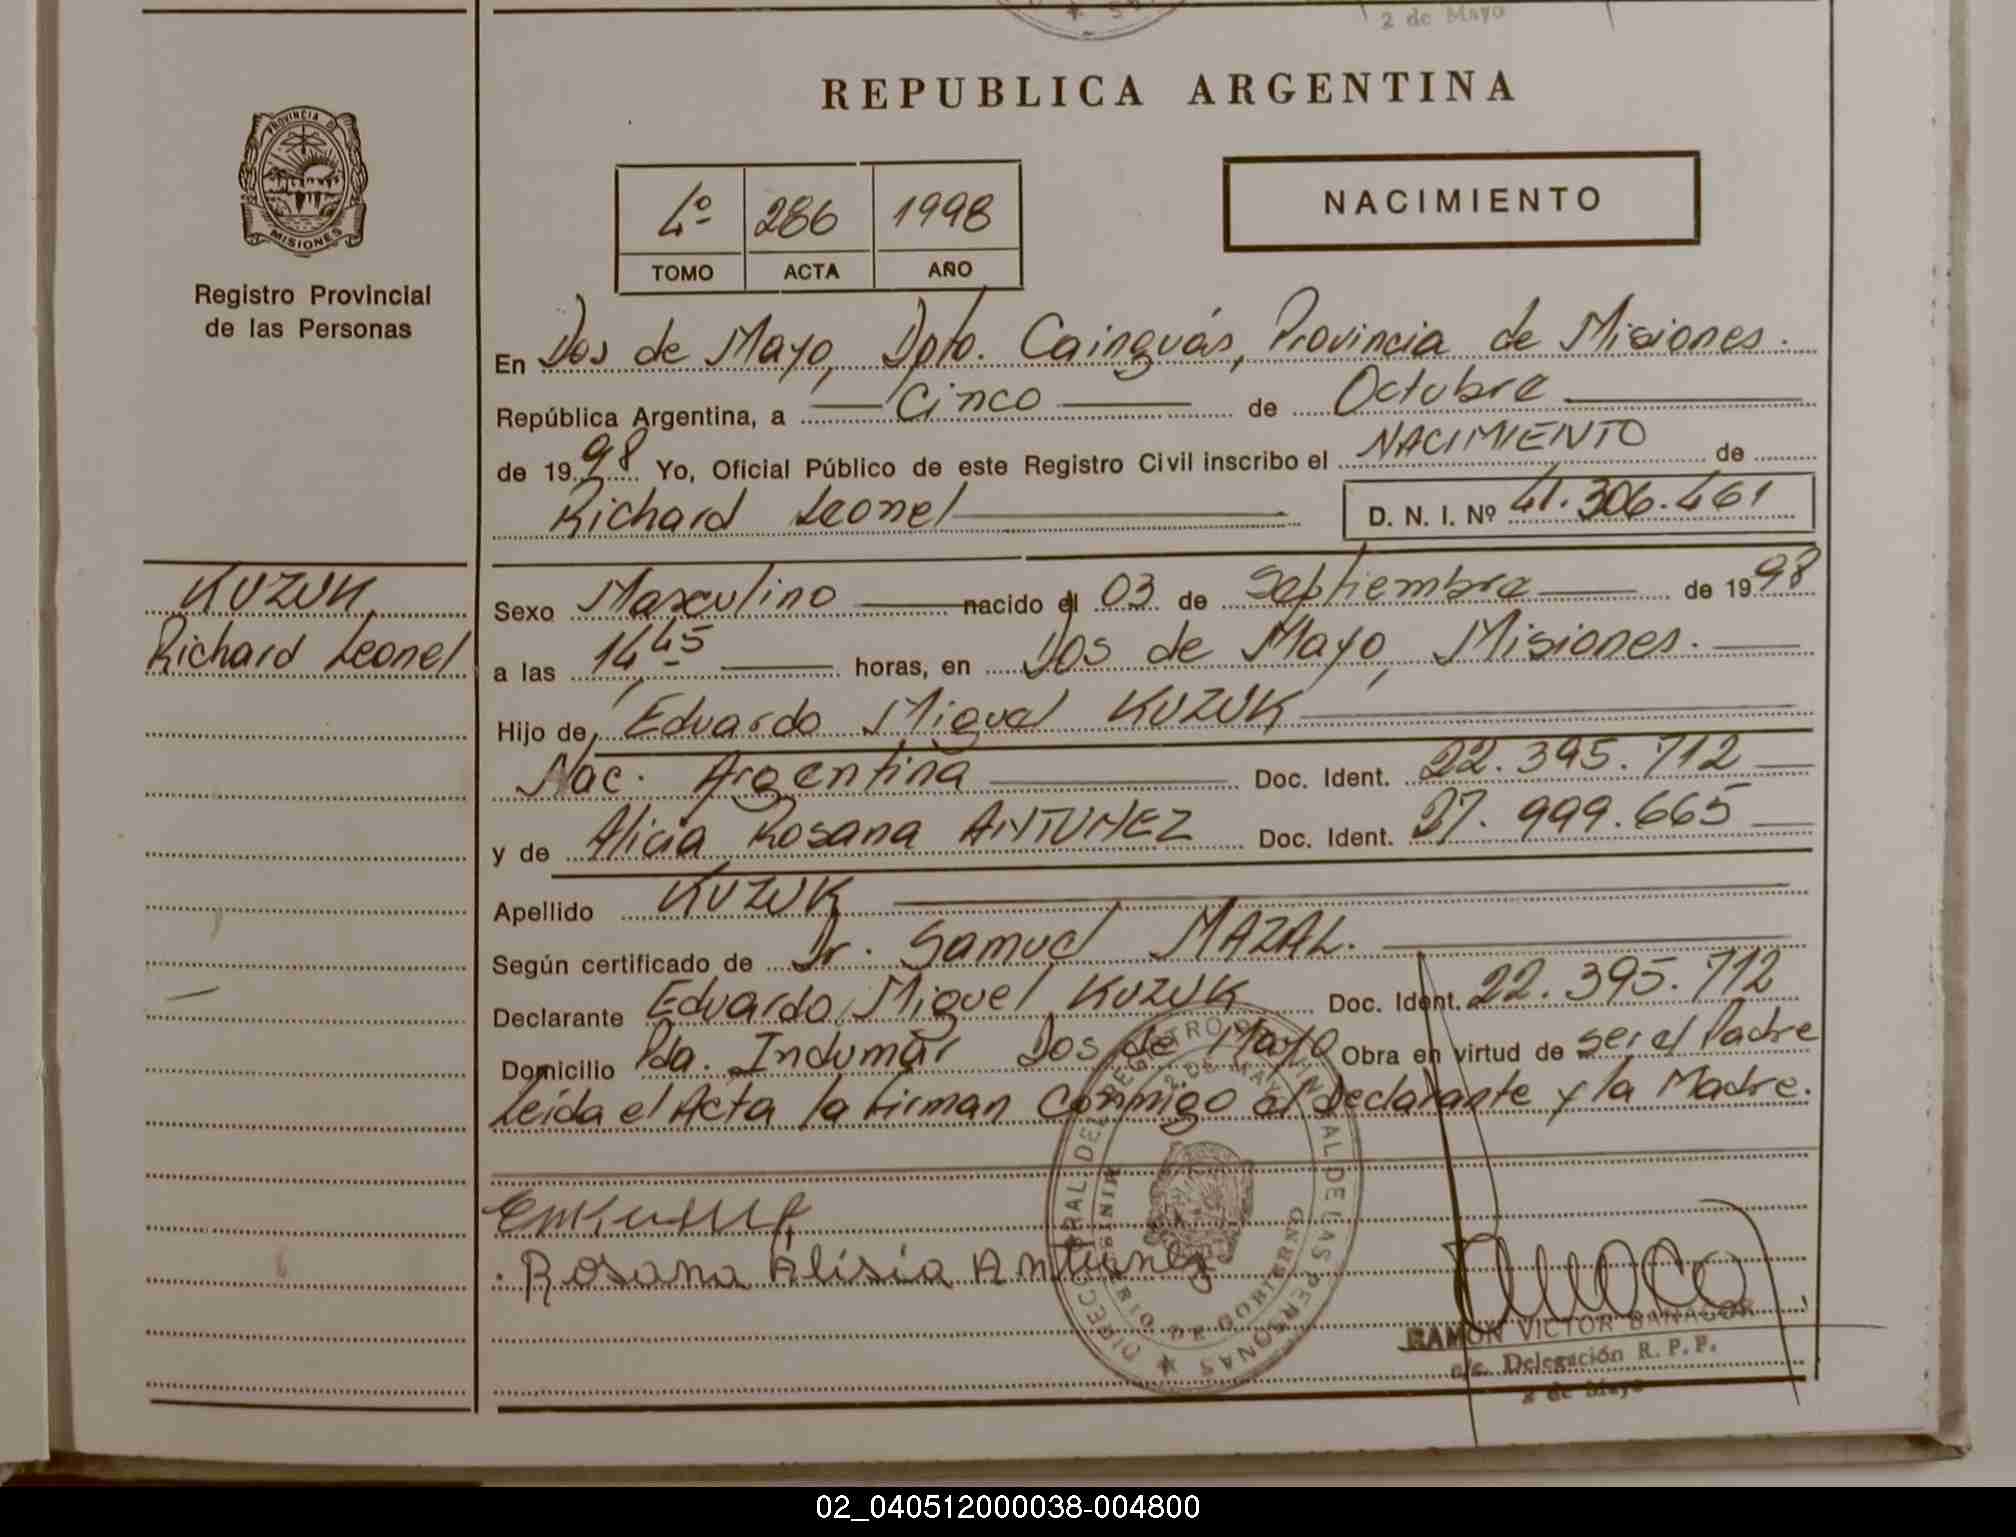 2 de Mayo
REPUBLICA ARGENTINA
PROVINCIA DE
MISIONES
Registro Provincial
de las Personas
4º 286 1998
TOMO ACTA AÑO
NACIMIENTO
En Dos de Mayo, Dpto. Cainguás, Provincia de Misiones.
República Argentina, a Cinco de Octubre
de 1998 Yo, Oficial Público de este Registro Civil inscribo el NACIMIENTO de
Richard Leonel D. N. I. Nº 41.306.461
KUZUK
Richard Leonel
Sexo Masculino nacido el 03 de Septiembre de 1998
a las 14,45 horas, en Dos de Mayo, Misiones.
Hijo de Eduardo Miguel KUZUK
Nac. Argentina Doc. Ident. 22.395.712
y de Alicia Rosana ANTUNEZ Doc. Ident. 27.999.665
Apellido KUZUK
Según certificado de Dr. Samuel MAZAL.
Declarante Eduardo Miguel KUZUK Doc. Ident. 22.395.712
Domicilio Pda. Indumar Dos de Mayo Obra en virtud de ser el Padre
Leída el Acta la firman conmigo el Declarante y la Madre.
Rosana Alisia Antunez
DIRECC REGISTRO PROVINCIAL DE LAS PERSONAS
2 DE MAYO
DE GOBIERNO
RAMON VICTOR
Delegación R. P. P.
2 de Mayo
02_040512000038-004800